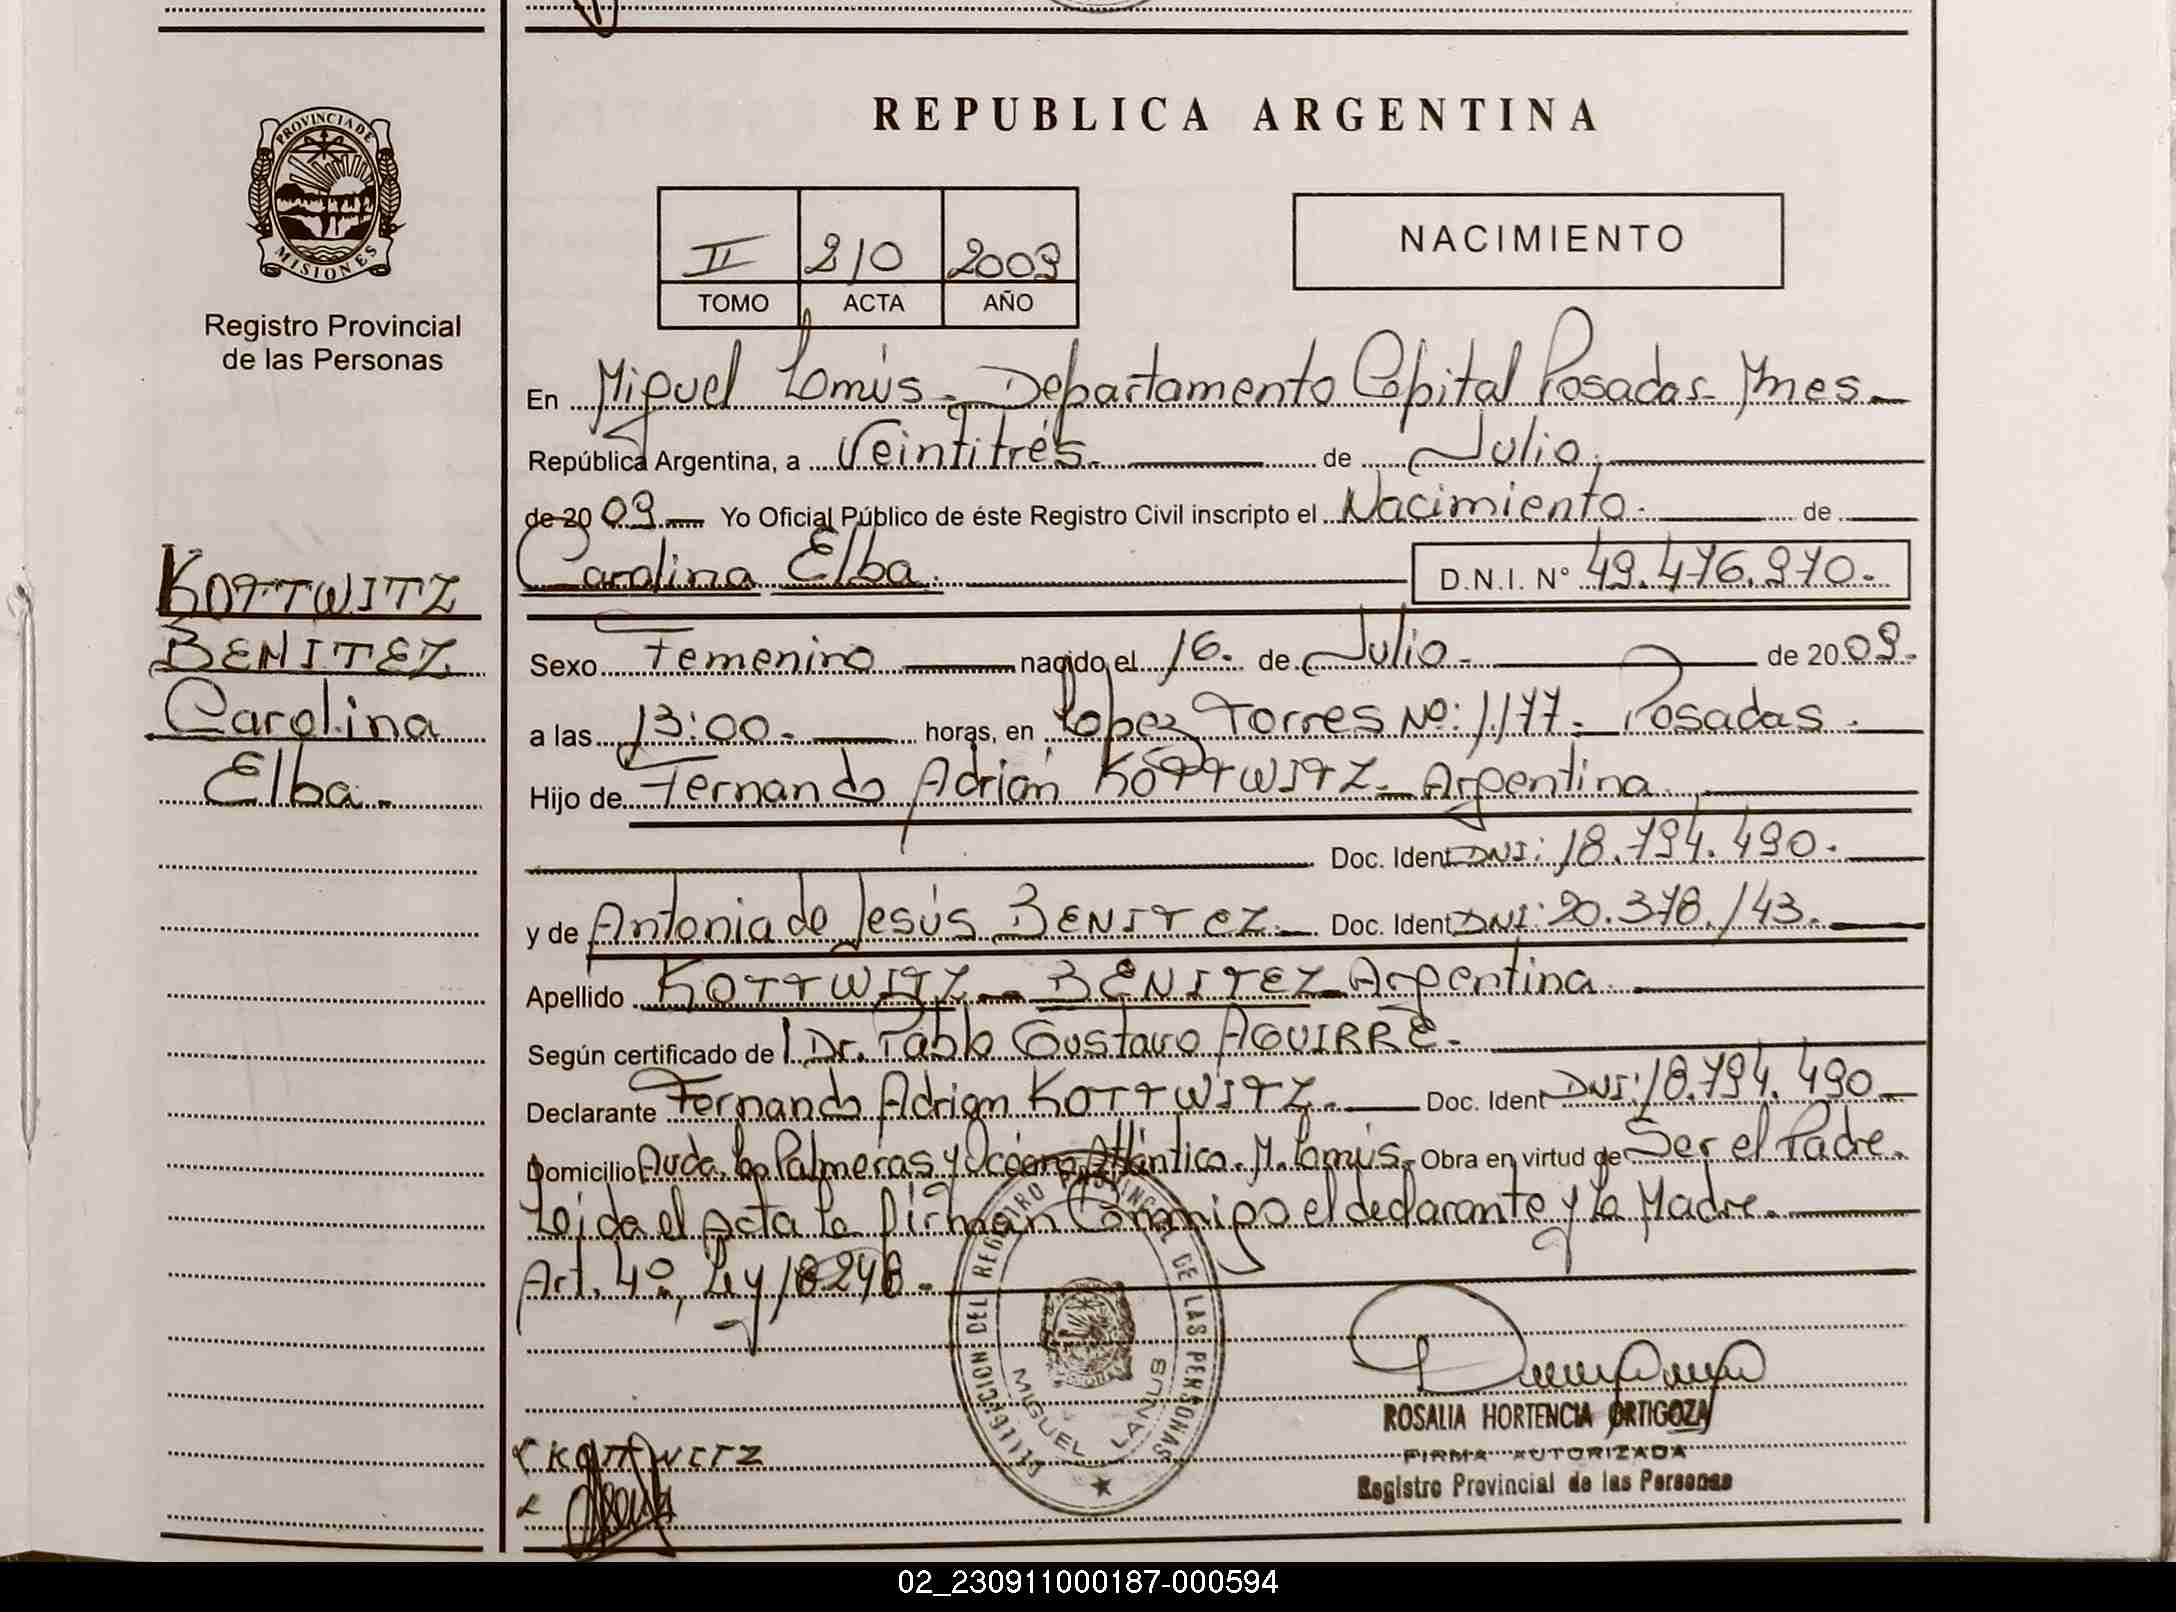 PROVINCIA DE
MISIONES
Registro Provincial
de las Personas
KOTTWITZ
BENITEZ
Carolina
Elba.-
REPUBLICA ARGENTINA
II 210 2009
TOMO ACTA AÑO
NACIMIENTO
En Miguel Lanús - Departamento Capital Posadas - Mnes -
República Argentina, a Veintitrés. de Julio,
de 2009 Yo Oficial Público de éste Registro Civil inscripto el Nacimiento. de
Carolina Elba. D.N.I. N° 49.476.970.-
Sexo Femenino nacido el 16. de Julio. de 2009.
a las 13:00.- horas, en Lopez Torres Nº: 1.177.- Posadas.
Hijo de Fernando Adrián KOTTWITZ.- Argentina.
Doc. Ident DNI: 18.794.490.
y de Antonia de Jesús BENITEZ.- Doc. Ident DNI: 20.378.143.-
Apellido KOTTWITZ - BENITEZ - Argentina.
Según certificado de Dr. Pablo Gustavo AGUIRRE.-
Declarante Fernando Adrian KOTTWITZ.- Doc. Ident DNI: 18.794.490 -
Domicilio Avda. Las Palmeras y Océano Atlántico - M. Lanús - Obra en virtud de Ser el Padre.
Leida el Acta la firman Conmigo el declarante y la Madre.
Art. 4º, Ley 18248.-
REGISTRO PROVINCIAL DE LAS PERSONAS
MIGUEL LANUS
ROSALIA HORTENCIA ORTIGOZA
FIRMA AUTORIZADA
Registro Provincial de las Personas
KOTTWITZ
02_230911000187-000594